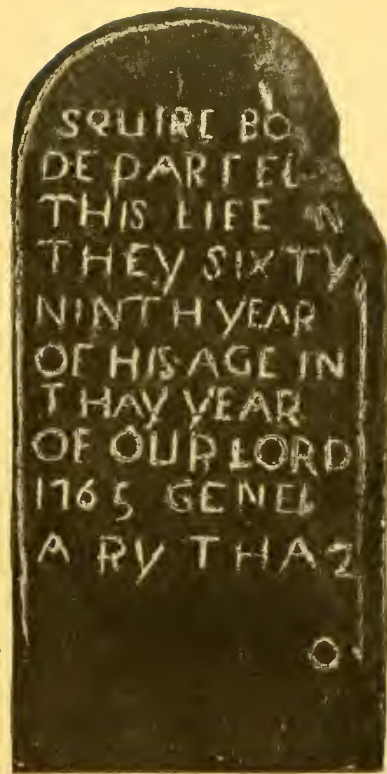 SQUIRE BO
DEPARTED
THIS LIFE IN
THEY SIXTY
NINTH YEAR
OF HIS AGE IN
THAY YEAR
OF OUR LORD
1765 GENEL
ARY THA 2